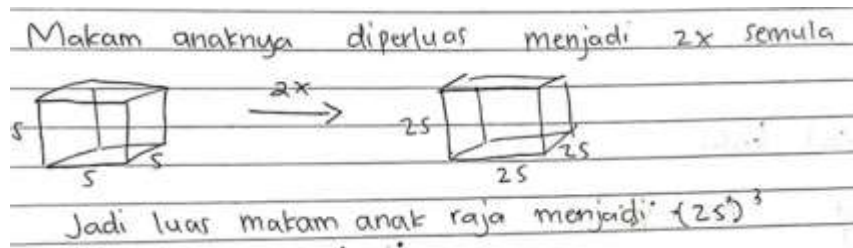 Makam anaknya diperluas menjadi 2x semula
2x
s
s
s
2s
2s
2s
Jadi luas makam anak raja menjadi (2s)³